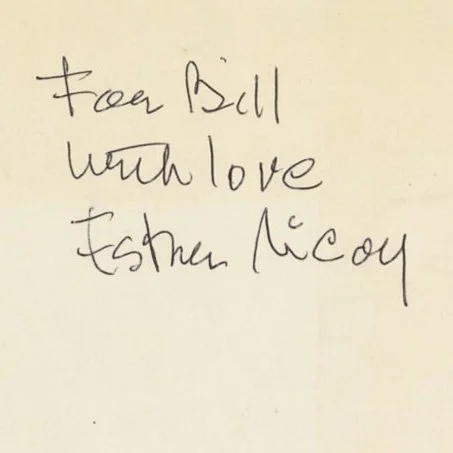 For Bill
With love
Esther McCoy